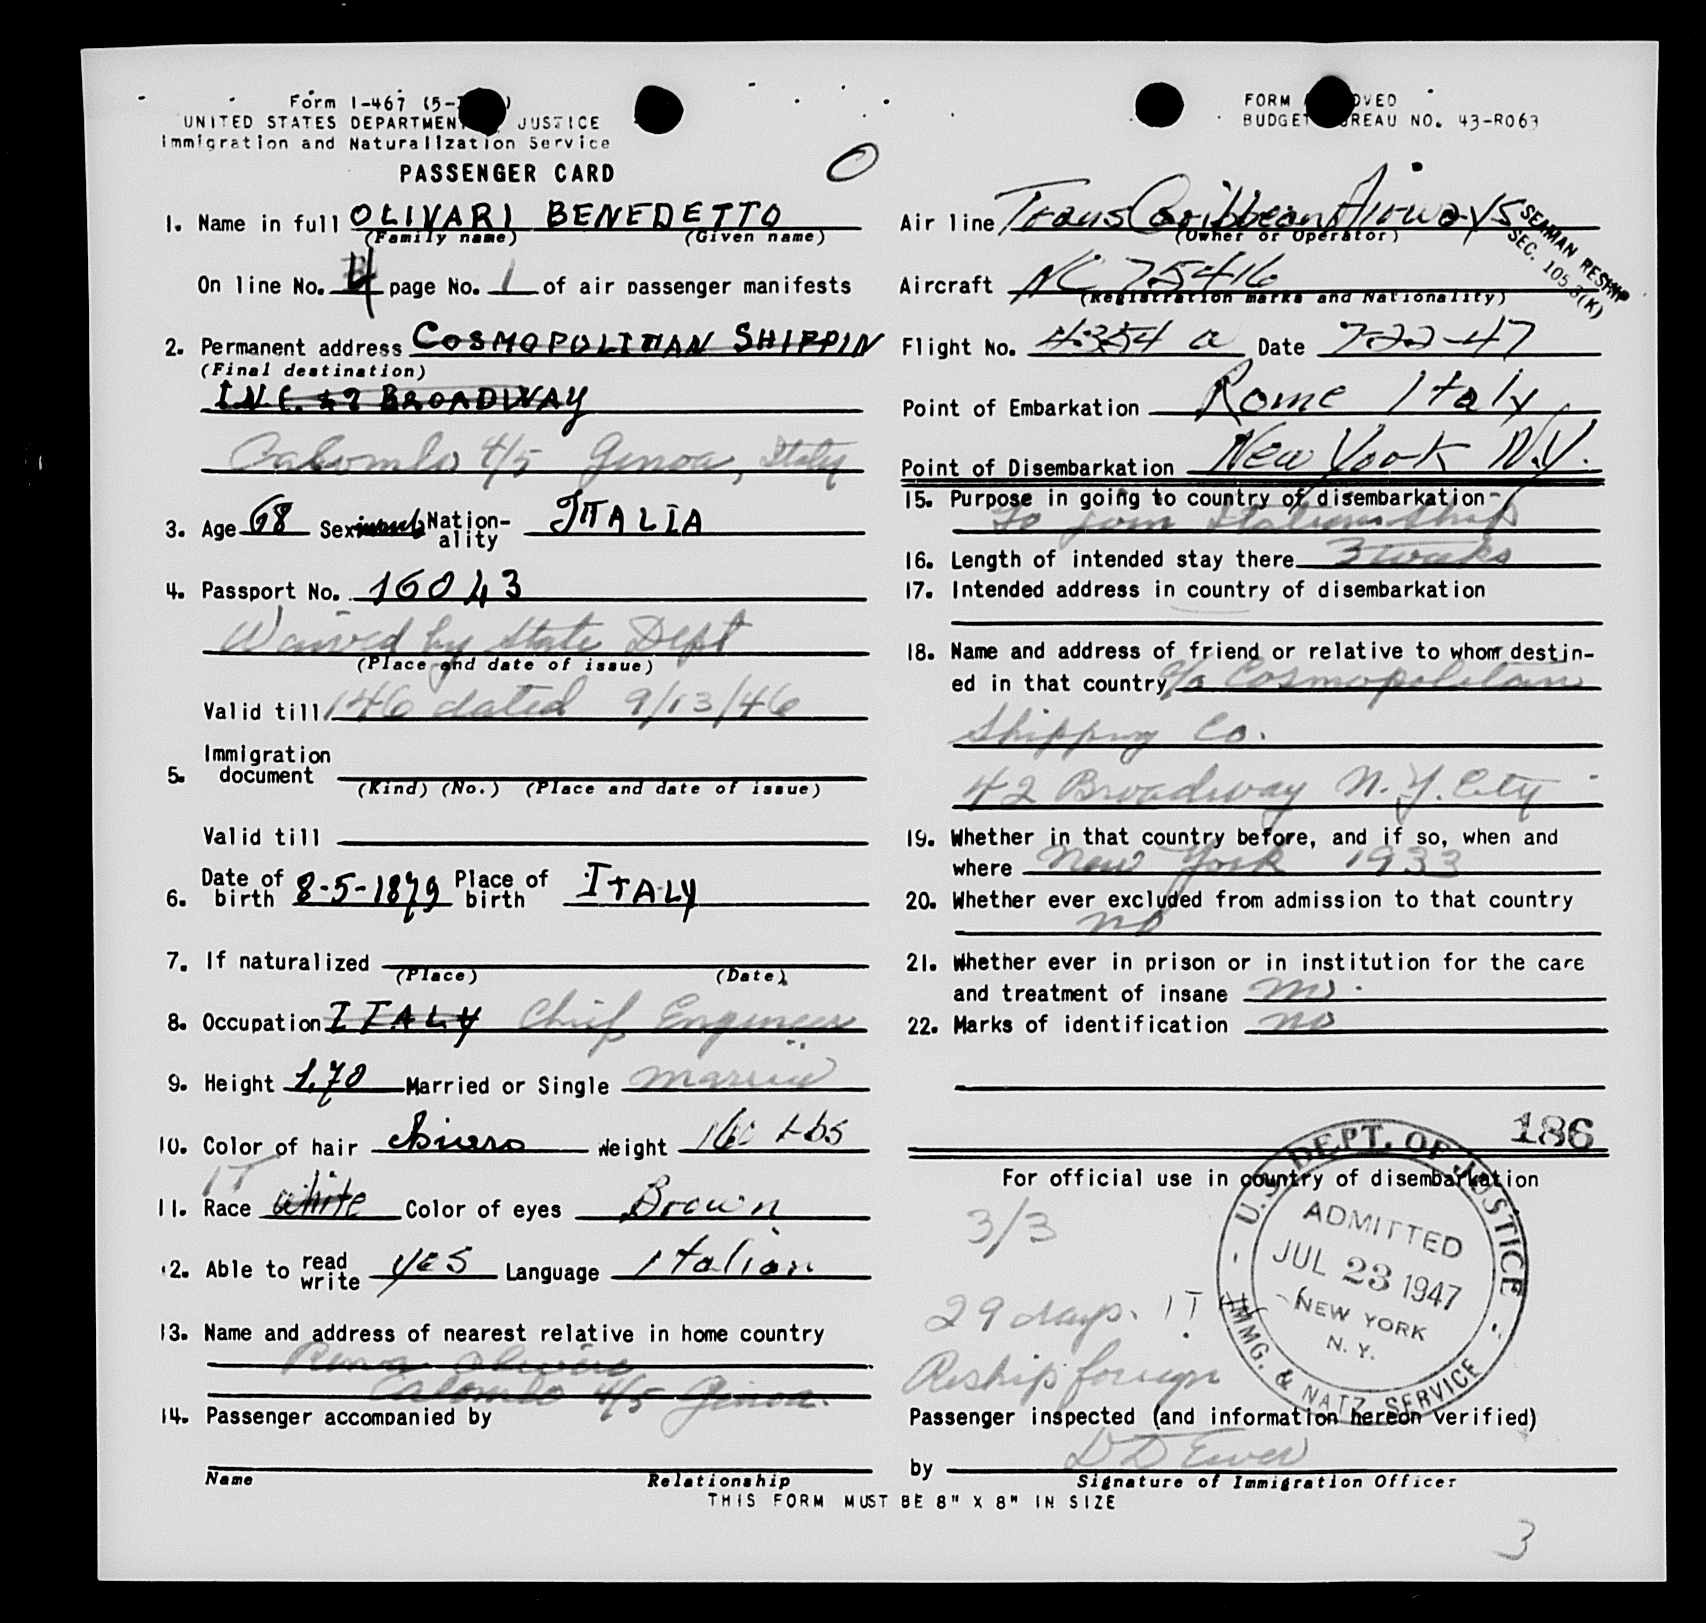 Form I-467 (5-
UNITED STATES DEPARTMENT JUSTICE
Immigration and Naturalization Service
PASSENGER CARD
1. Name in full OLIVARI BENEDETTO
(Family name) (Given name)
On line No. 4 page No. 1 of air passenger manifests
2. Permanent address COSMOPOLITIAN SHIPPIN
(Final destination)
INC. 42 BROADWAY
4/5 Genoa, Italy
3. Age 68 Sex Nation-ality ITALIA
4. Passport No. 16043
Waived by State Dept
(Place and date of issue)
Valid till 146 dated 9/13/46
5. Immigration document
(Kind) (No.) (Place and date of issue)
Valid till
6. Date of birth 8-5-1879 Place of birth ITALY
7. If naturalized
(Place) (Date)
8. Occupation ITALY Chief Engineer
9. Height 1,70 Married or Single Married
10. Color of hair Weight 160 Lbs
IT
11. Race white Color of eyes Brown
12. Able to read write yes Language Italian
13. Name and address of nearest relative in home country
4/5 Genoa.
14. Passenger accompanied by
Name Relationship
THIS FORM MUST BE 8" X 8" IN SIZE
FORM APPROVED
BUDGET BUREAU NO. 43-R063
Air line Trans Caribbean Airways
(Owner or Operator)
SEAMAN RESHIP
SEC. 105.3(K)
Aircraft NC 75416
(Registration marks and Nationality)
Flight No. 4354 a Date 7-22-47
Point of Embarkation Rome Italy
Point of Disembarkation New York N.Y.
15. Purpose in going to country of disembarkation-
To join Italian ship
16. Length of intended stay there 3 weeks
17. Intended address in country of disembarkation
18. Name and address of friend or relative to whom destin-
ed in that country c/o Cosmopolitan
Shipping Co.
42 Broadway N.Y. City
19. Whether in that country before, and if so, when and
where New York 1933
20. Whether ever excluded from admission to that country
no
21. Whether ever in prison or in institution for the care
and treatment of insane no.
22. Marks of identification no
186
For official use in country of disembarkation
3/3
29 days. IT
Reship foreign
U.S. DEPT. OF JUSTICE
ADMITTED
JUL 23 1947
NEW YORK
N. Y.
IMMG. & NATZ. SERVICE
Passenger inspected (and information hereon verified)
by
Signature of Immigration Officer
3